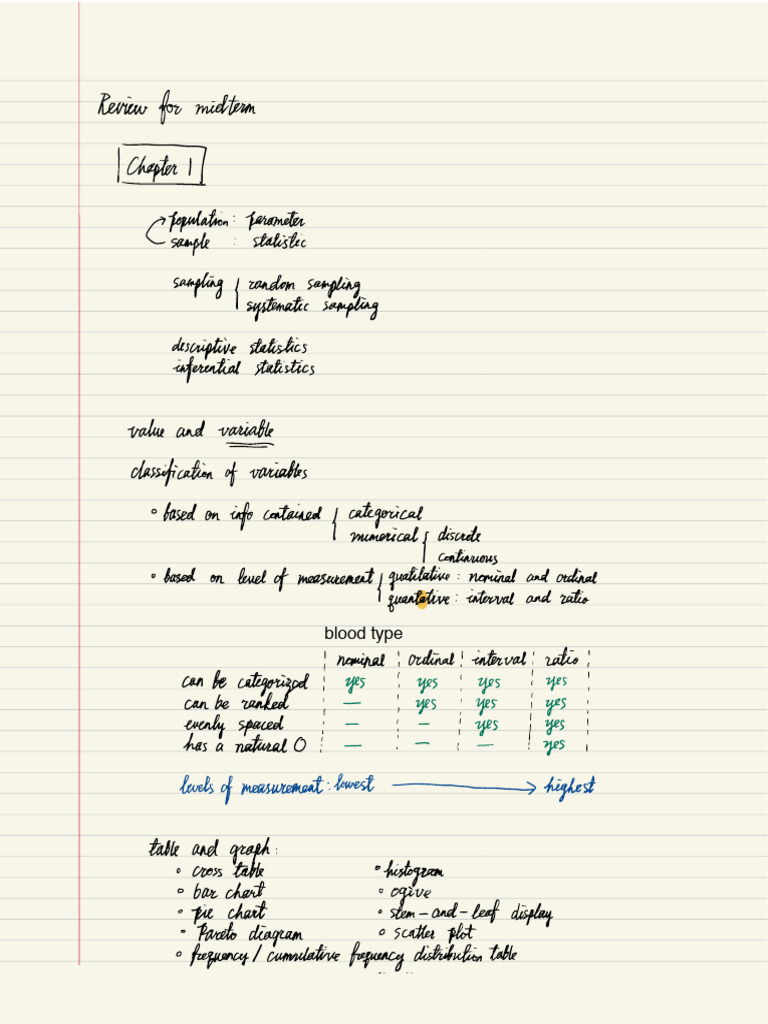 Review for midterm
Chapter 1
population : parameter
sample : statistic
sampling { random sampling
systematic sampling
descriptive statistics
inferential statistics
value and variable
classification of variables
◦ based on info contained { categorical
numerical { discrete
continuous
• based on level of measurement { quatilative : nominal and ordinal
quantative : interval and ratio
blood type
nominal | ordinal | interval | ratio
can be categorized yes yes yes yes
can be ranked — yes yes yes
evenly spaced — – yes yes
has a natural 0 — — — yes
levels of measurement : lowest → highest
table and graph :
• cross table • histogram
◦ bar chart ◦ ogive
• pie chart • stem-and-leaf display
• Pareto diagram ◦ scatter plot
◦ frequency / cumulative frequency distribution table